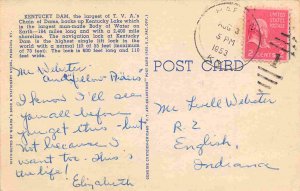 KENTUCKY DAM, the largest of T. V. A.'s
Chain of Dams, banks up Kentucky Lake which
is the largest man-made Body of Water on
Earth—184 miles long and with a 2,400 mile
shoreline. The navigation lock of Kentucky
Dam is the highest single lift lock in the
world with a normal lift of 55 feet (maximum
of 70 feet). The lock is 600 feet long and
110 feet wide.
AUG 3
5 PM
1953
POST CARD
Mr. Webster
and fellow
I know I'll see
you all before
you get this - but
not because I
want to. This is
the life!
Elizabeth
Mr. Lowell Webster
R 2
English,
Indiana